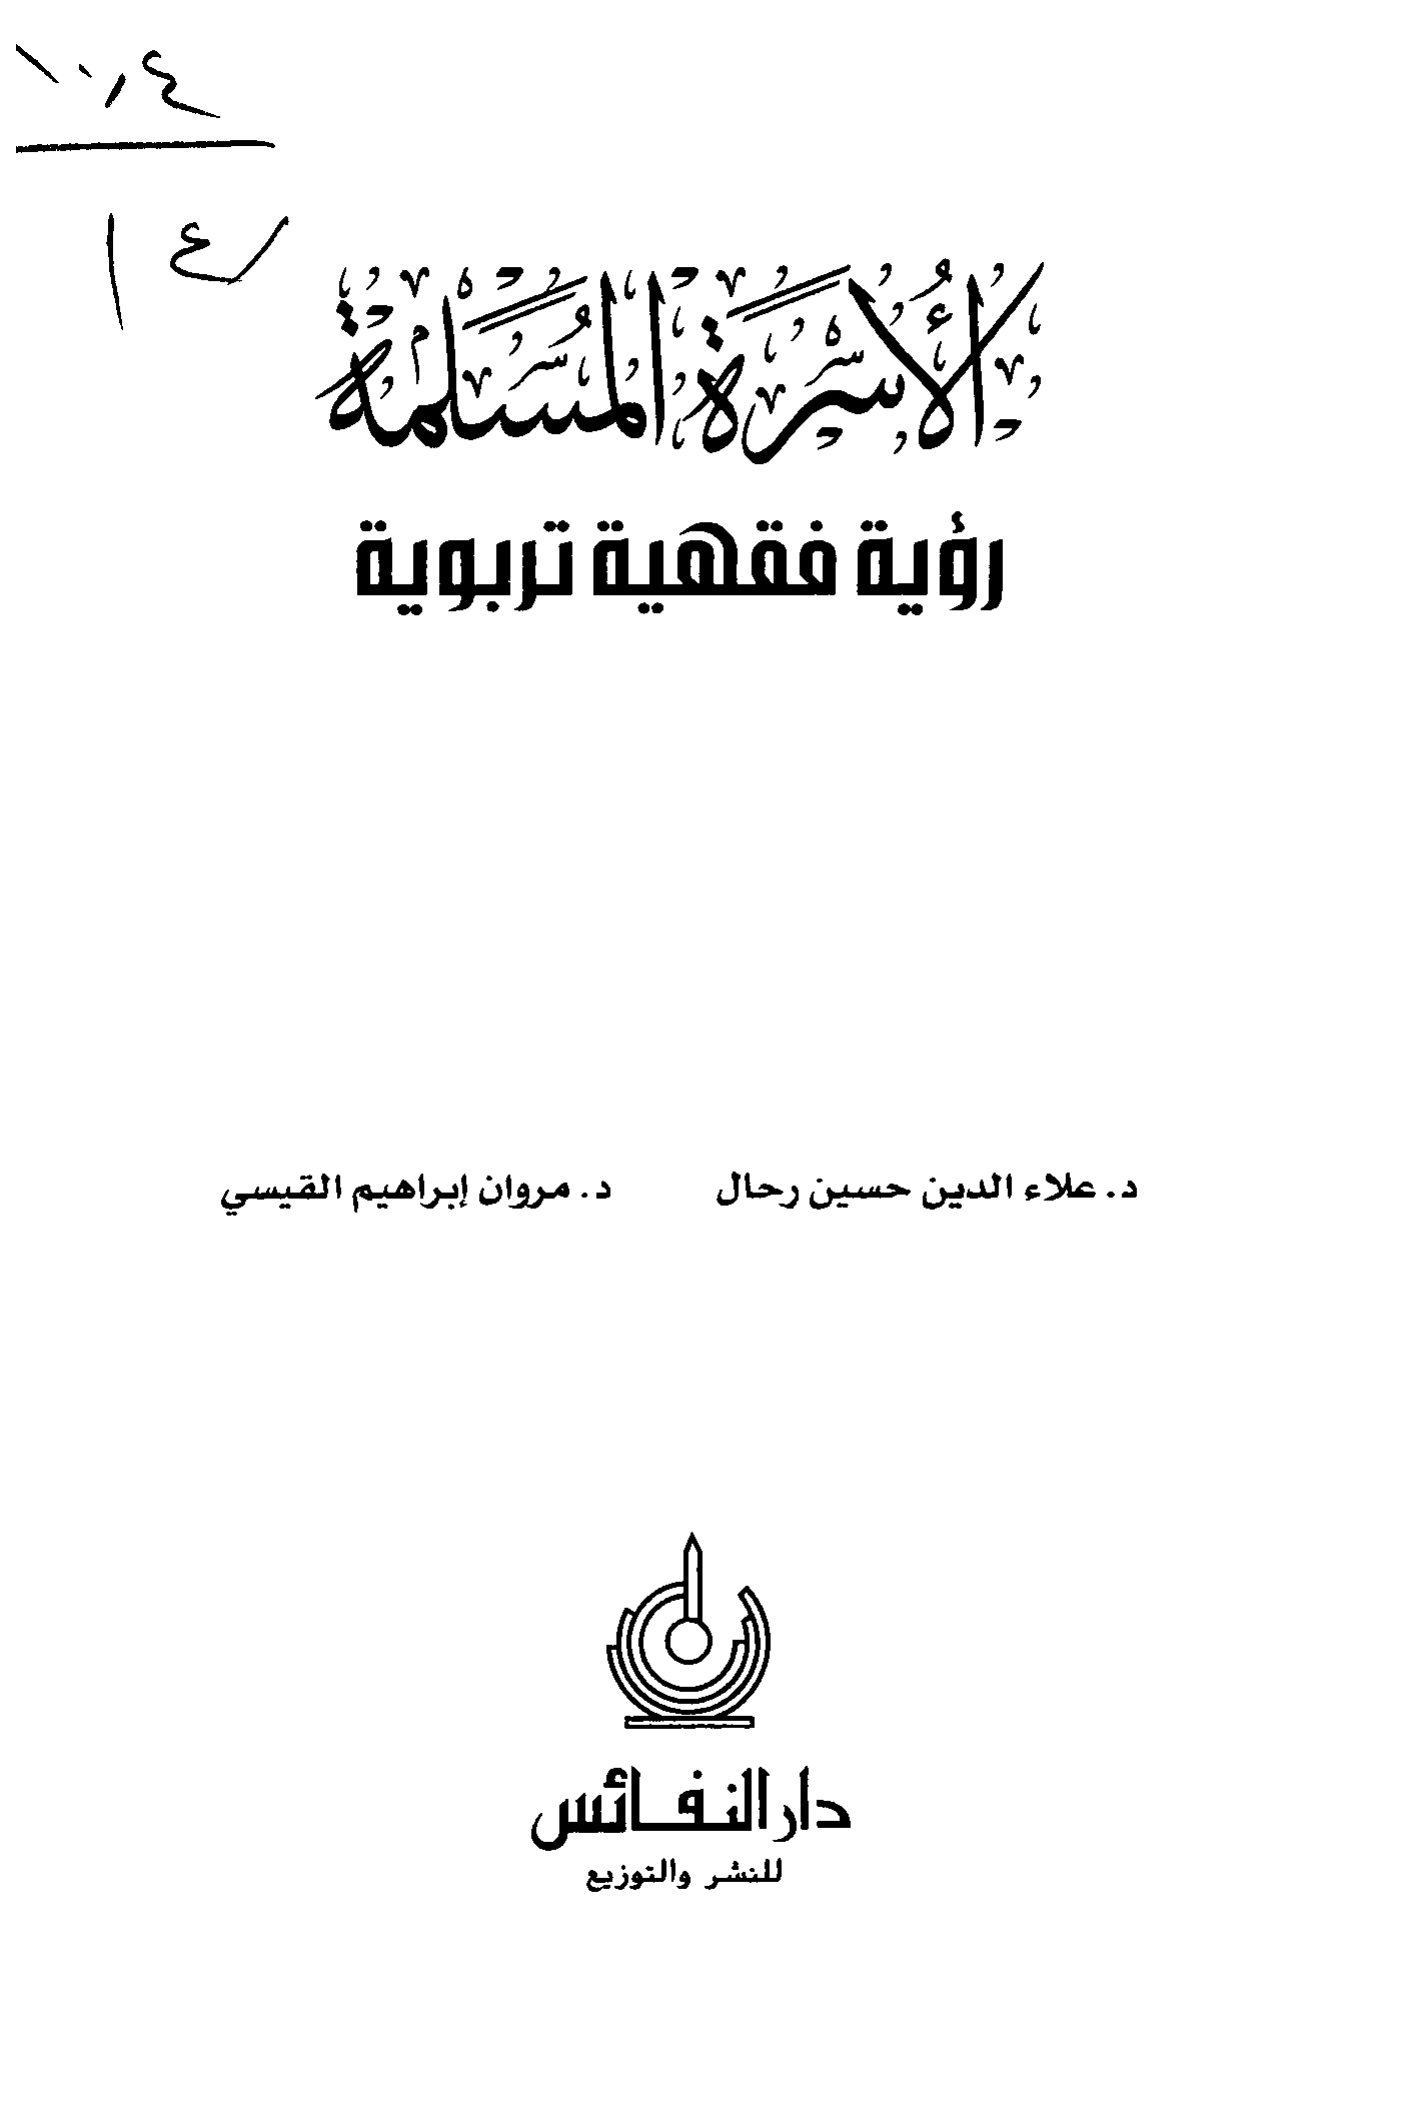 الأُسْرَةُ المُسْلِمَةُ
رؤية فقهية تربوية
د. علاء الدين حسين رحال د. مروان إبراهيم القيسي
دار النفائس
للنشر والتوزيع